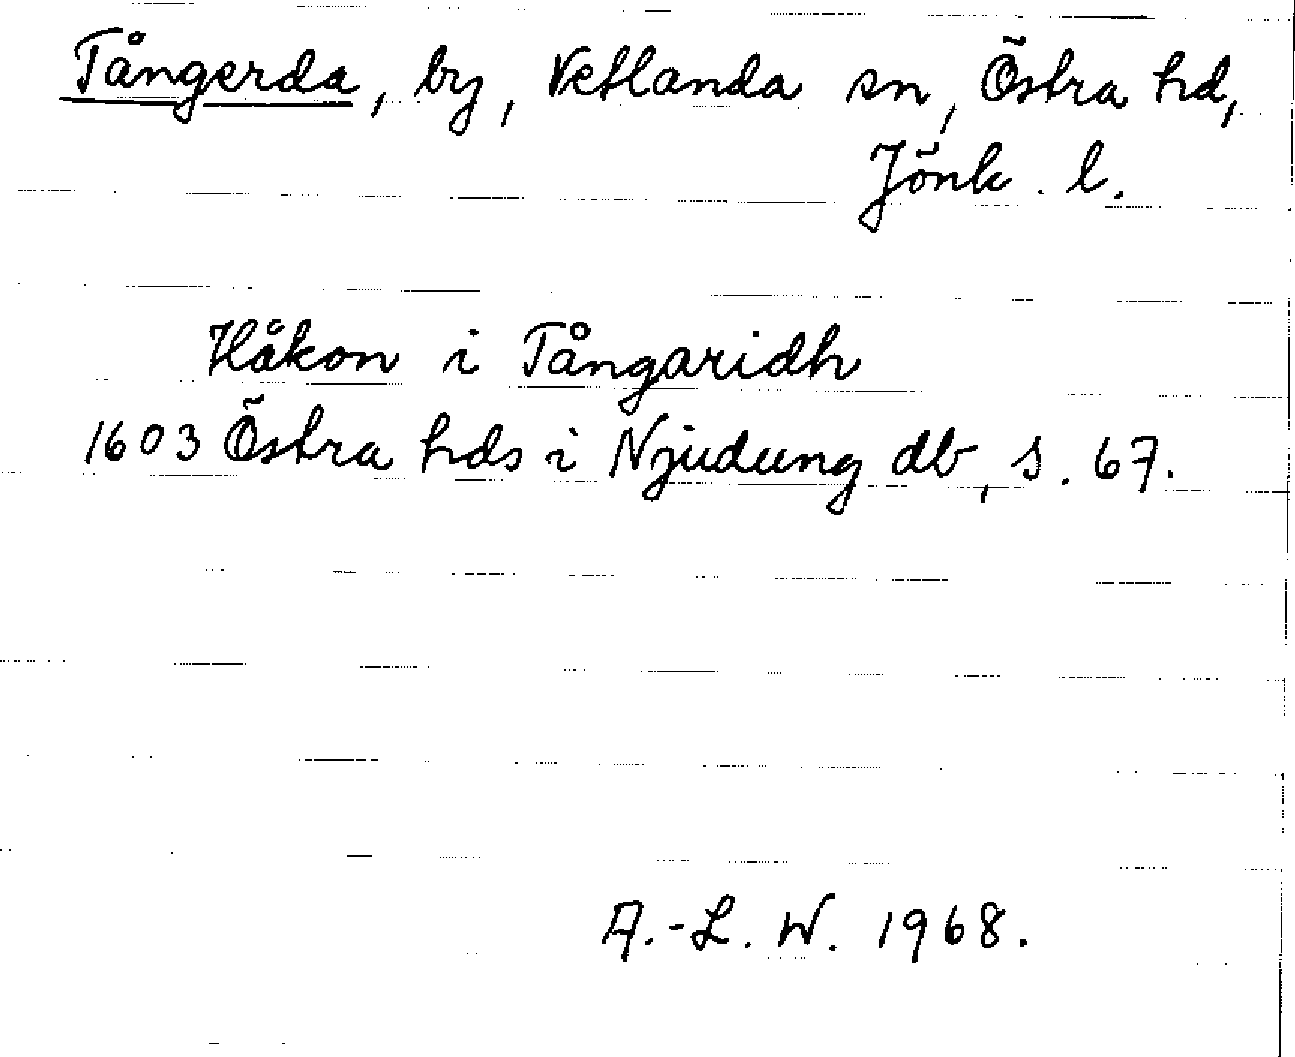 Tångerda, by, Vetlanda sn, Östra hd,
Jönk. l.
Håkon i Tångaridh
1603 Östra hds i Njudung db, s. 67.
A.-L. W. 1968.